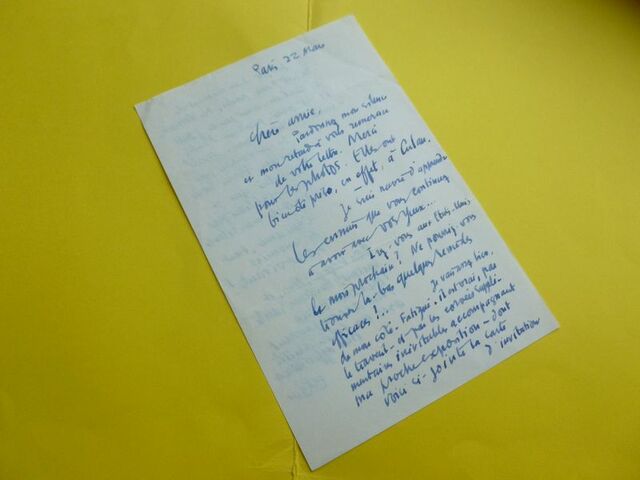 Paris 22 Mars
Chère amie,
pardonnez mon silence
et mon retard à vous remercier
de votre lettre. Merci
pour les photos. Elles ont
bien été prises, en effet, à Cuba.
Je suis navré d'apprendre
les ennuis que vous continuez
à avoir avec vos yeux...
Irez-vous aux Etats-Unis
le mois prochain? Ne pourriez vous
trouver là-bas quelques remèdes
efficaces!...
Je vais assez bien,
de mon côté. Fatigué, il est vrai, par
le travail - et par les corvées supplé-
mentaires inévitables accompagnant
ma proche exposition - dont
voici ci-jointe la carte
d'invitation